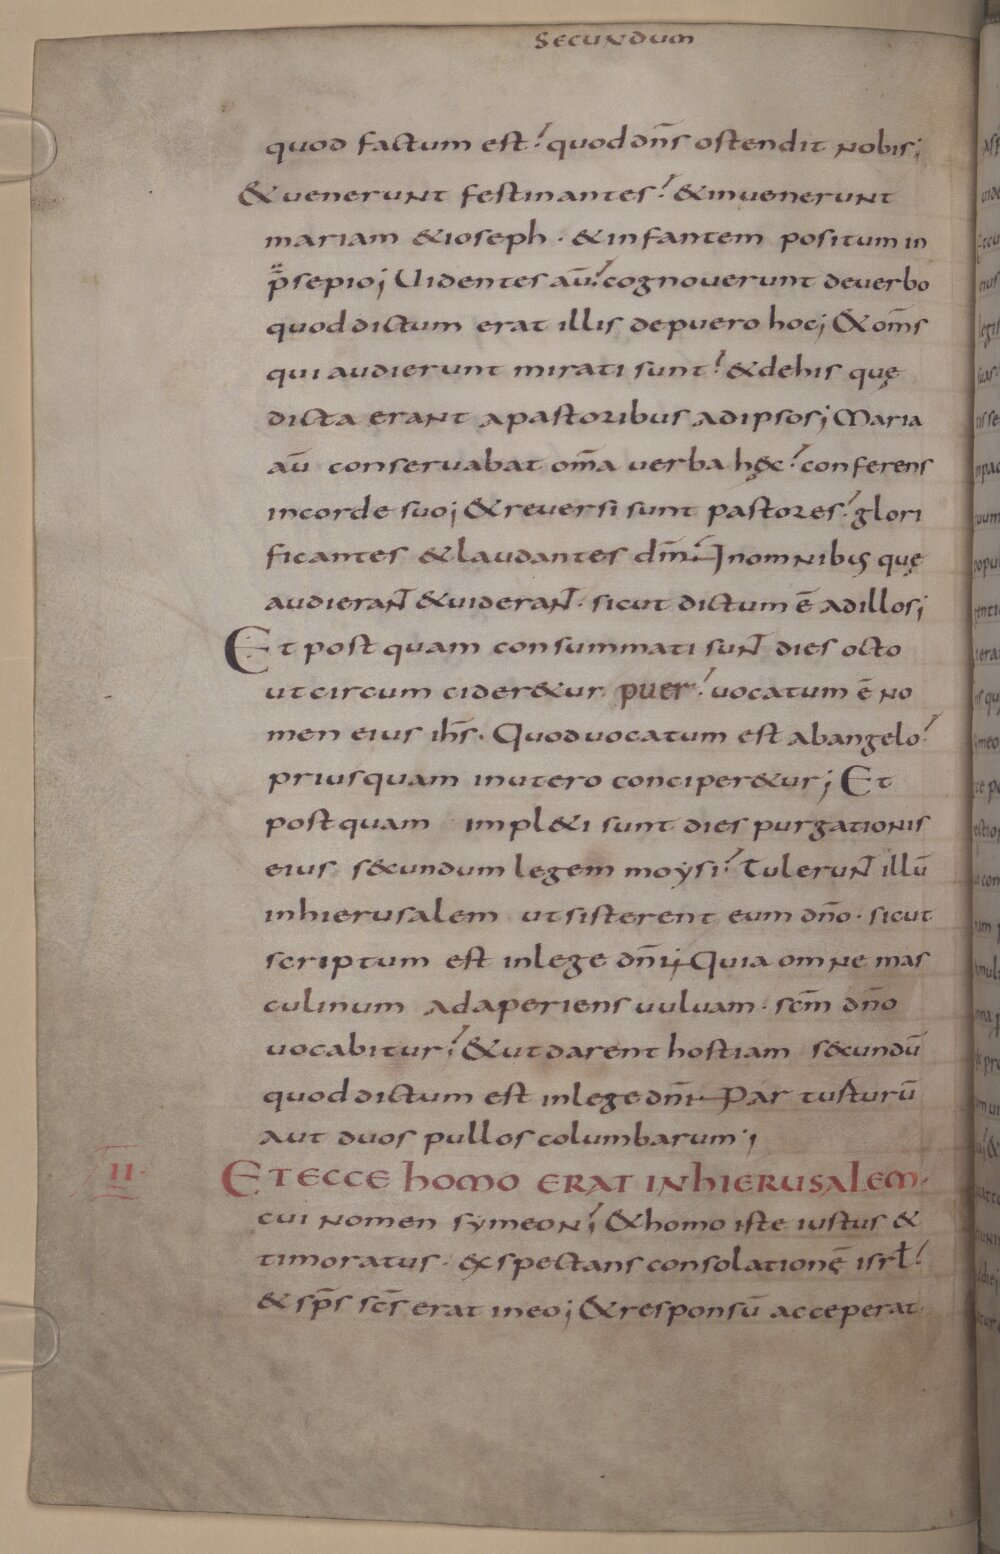 Secundum
quod factum est? quod dn̄s ostendit nobis;
& uenerunt festinantes? & inuenerunt
mariam & ioseph · & infantem positum in
p̄sepio; Uidentes aū? cognouerunt de uerbo
quod dictum erat illis de puero hoc; & om̄s
qui audierunt mirati sunt? & de his quę
dicta erant a pastoribus ad ipsos; Maria
aū conseruabat om̄a uerba hęc? conferens
in corde suo; & reuersi sunt pastores? glori
ficantes & laudantes dm̄? In omnibus quę
audierant & uiderant · sicut dictum ē ad illos;
Et post quam consummati sunt dies octo
ut circumcider&ur puer? uocatum ē no
men eius ih̄s · Quod uocatum est ab angelo?
priusquam in utero conciper&ur; Et
postquam impl&i sunt dies purgationis
eius s&cundum legem moẏsi? Tulerunt illū
in hierusalem ut sisterent eum dn̄o · sicut
scriptum est in lege dn̄i; Quia omne mas
culinum adaperiens uuluam · scm̄ dn̄o
uocabitur; & ut darent hostiam s&cundū
quod dictum est in lege dn̄i · Par tusturū
aut duos pullos columbarum;
II · Et ecce homo erat in hierusalem ·
cui nomen symeon; & homo iste iustus &
timoratus · &spectans consolationę̄ isrł?
& sp̄s sc̄s erat in eo; & responsū acceperat ·